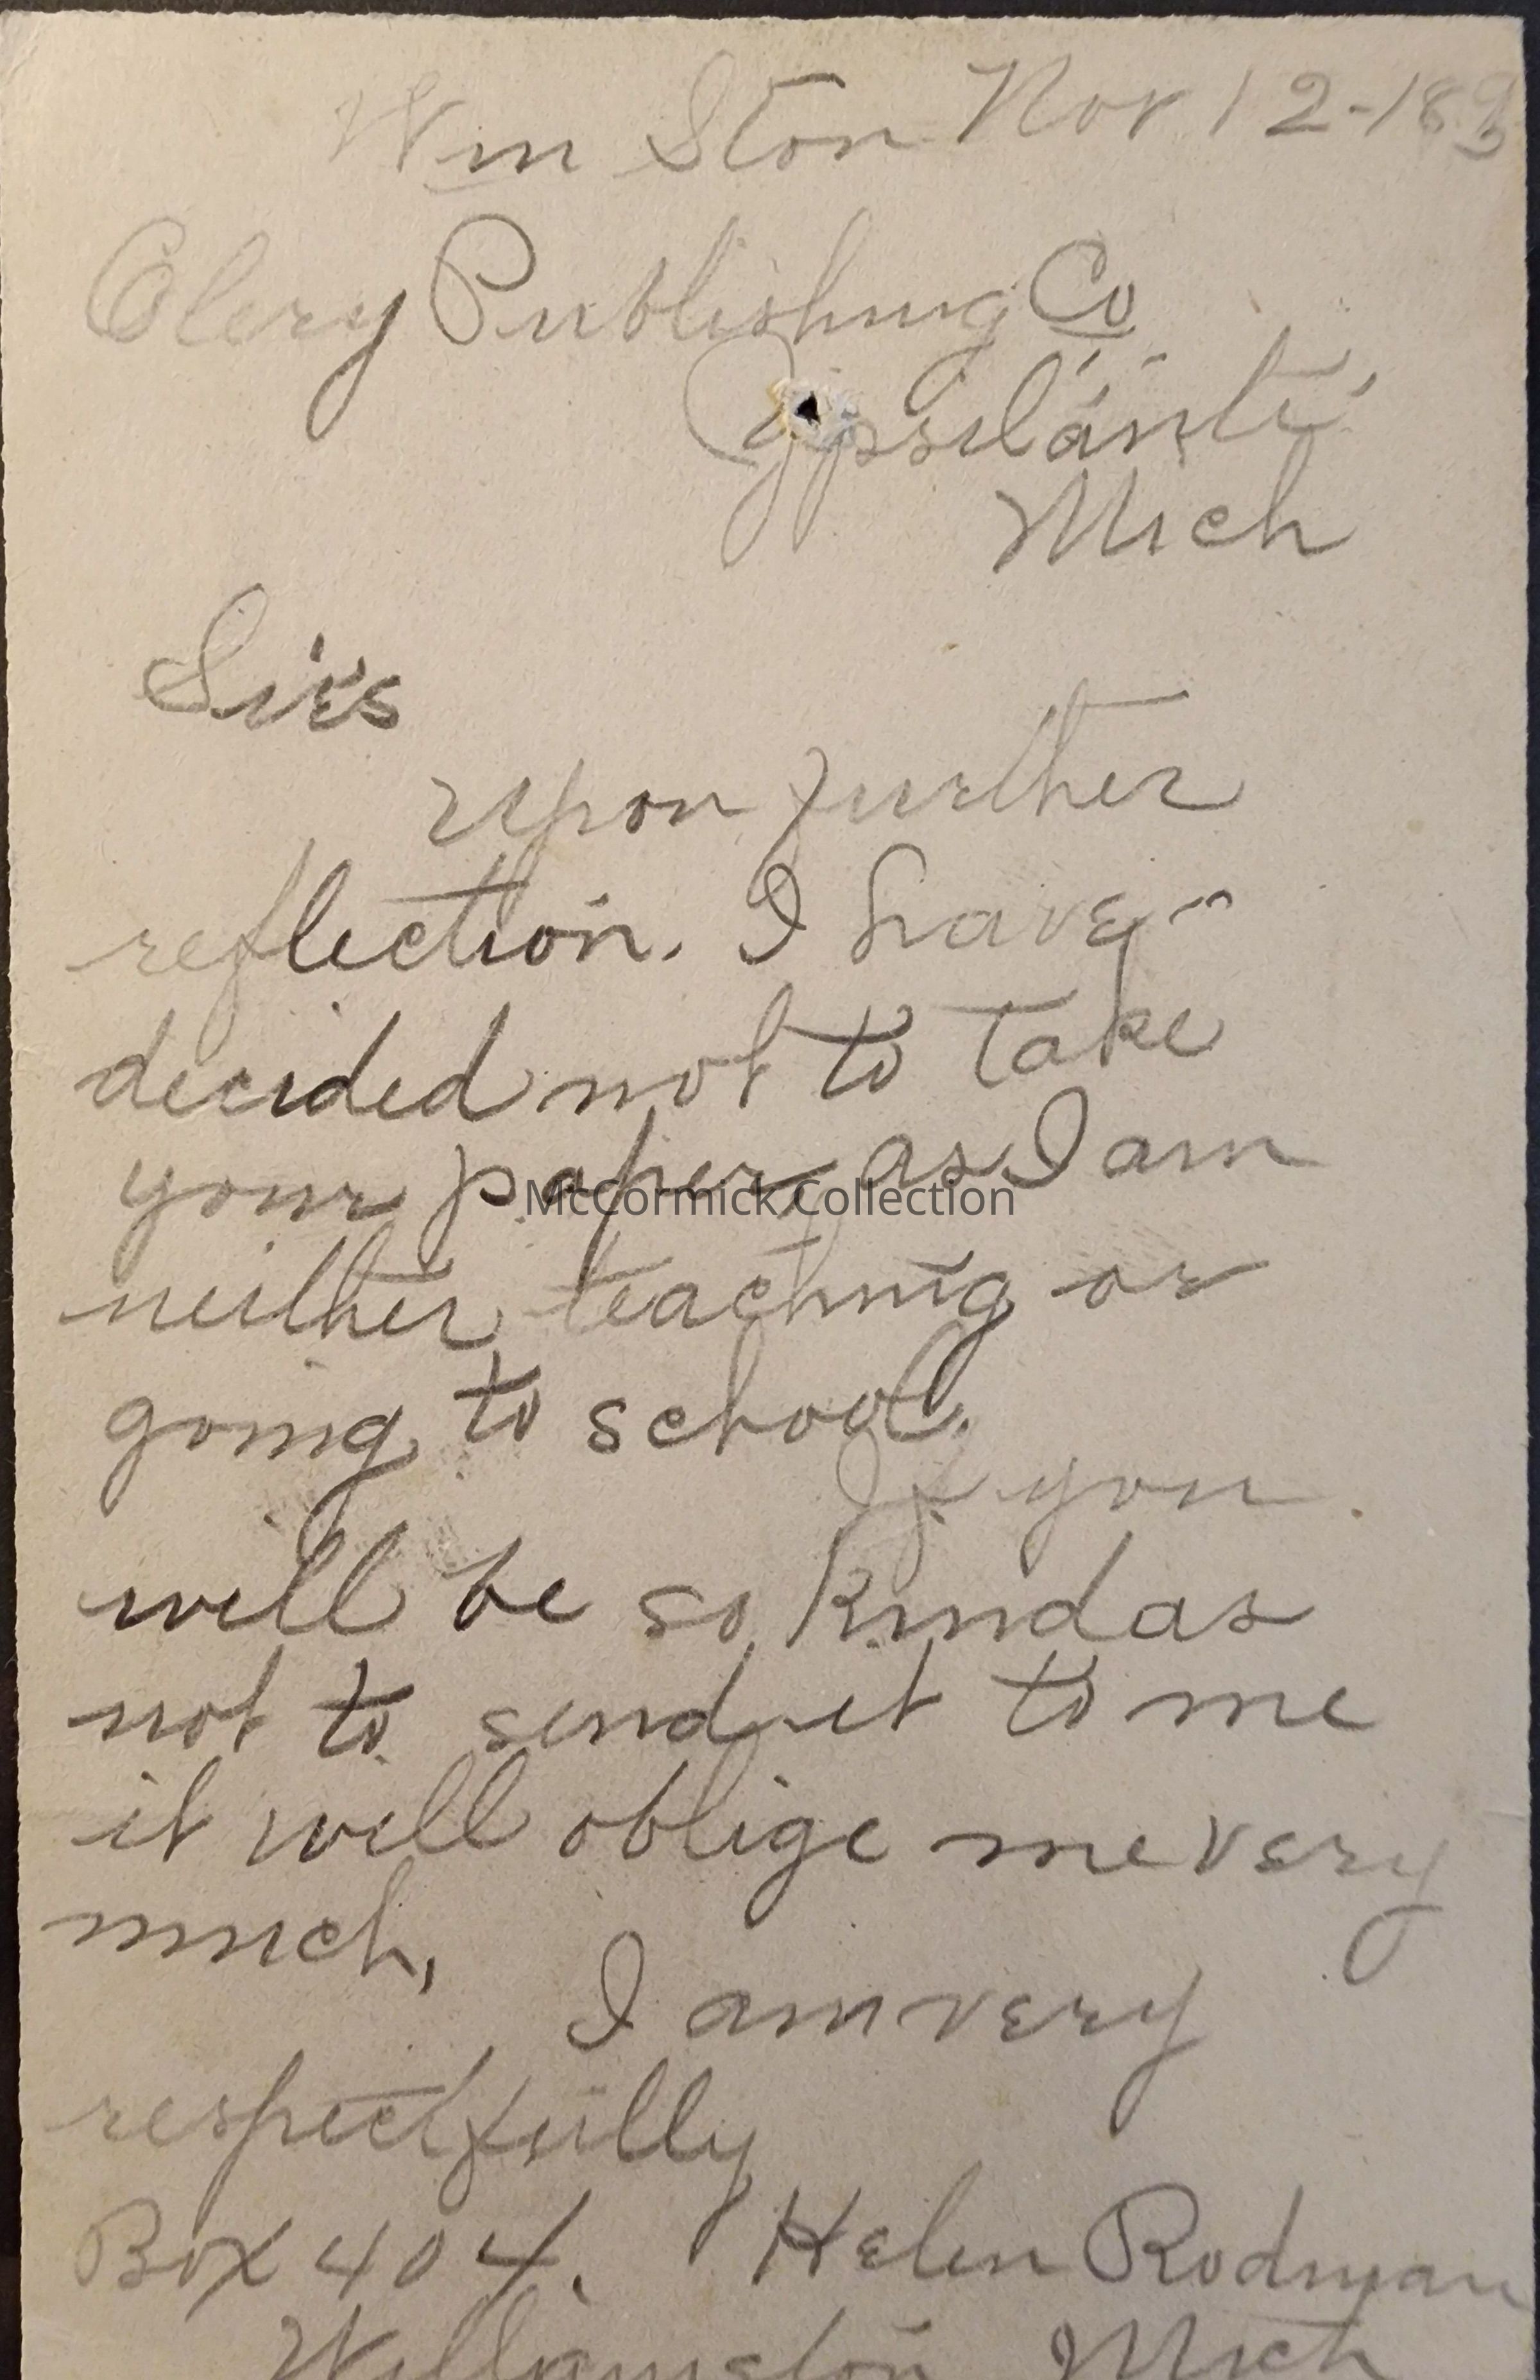 Wm Ston Nov 12-189
Olery Publishing Co
Ypsilanti,
Mich
Sirs
Upon further
reflection. I have
decided not to take
your paper, as I am
McCormick Collection
neither teaching or
going to school.
If you
will be so kind as
not to send it to me
it will oblige me very
much,
I am very
respectfully
Box 404. Helen Rodman
Williamston Mich